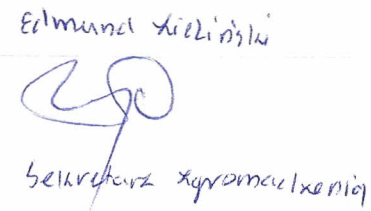 Edmund Zieliński
Sekretarz zgromadzenia